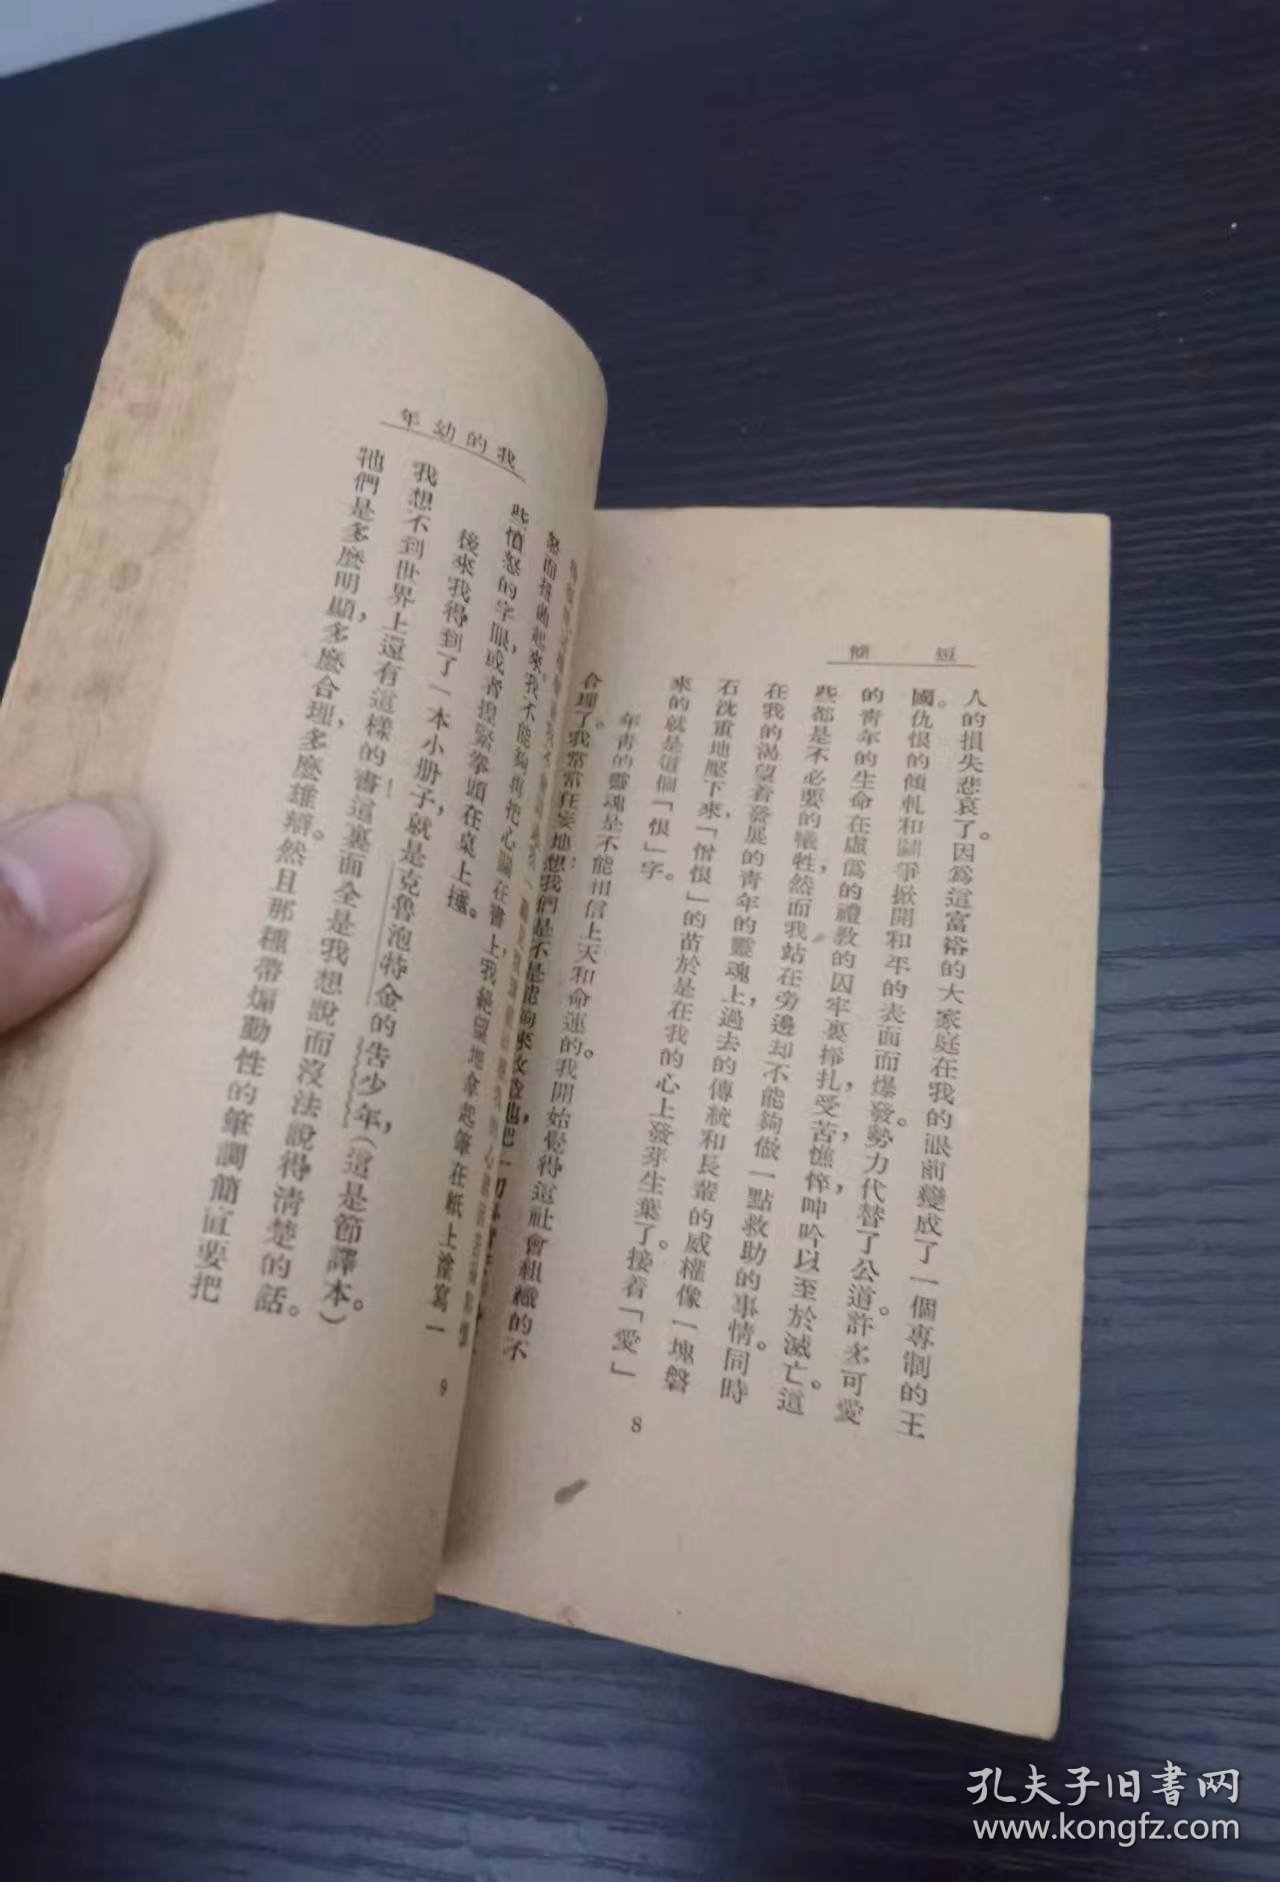 短簡
人的損失悲哀了。因爲這富裕的大家庭在我的眼前變成了一個專制的王
國。仇恨的傾軋和鬭爭掀開和平的表面而爆發。勢力代替了公道。許多可愛
的靑年的生命在虛僞的禮敎的囚牢裏掙扎，受苦，憔悴，呻吟以至於滅亡。這
些都是不必要的犧牲，然而我站在旁邊却不能夠做一點救助的事情。同時
在我的渴望着發展的靑年的靈魂上，過去的傳統和長輩的威權像一塊磐
石沈重地壓下來，「憎恨」的苗於是在我的心上發芽生葉了。接着「愛」
來的就是這個「恨」字。
年靑的靈魂是不能相信上天和命運的。我開始覺得這社會組織的不
合理了。我常常狂妄地想：我們是不是能夠來改造牠，把一切
8
我的幼年
怒而
起來。我不能夠再把心關在書上，我絕望地拿起筆在紙上塗寫一
些憤怒的字眼，或者揑緊拳頭在桌上捶。
後來我得到了一本小册子，就是克魯泡特金的告少年，（這是節譯本。）
我想不到世界上還有這樣的書！這裏面全是我想說而沒法說得淸楚的話。
牠們是多麽明顯，多麽合理，多麽雄辯。然且那種帶煽動性的筆調簡直要把
9
孔夫子旧書网
www.kongfz.com